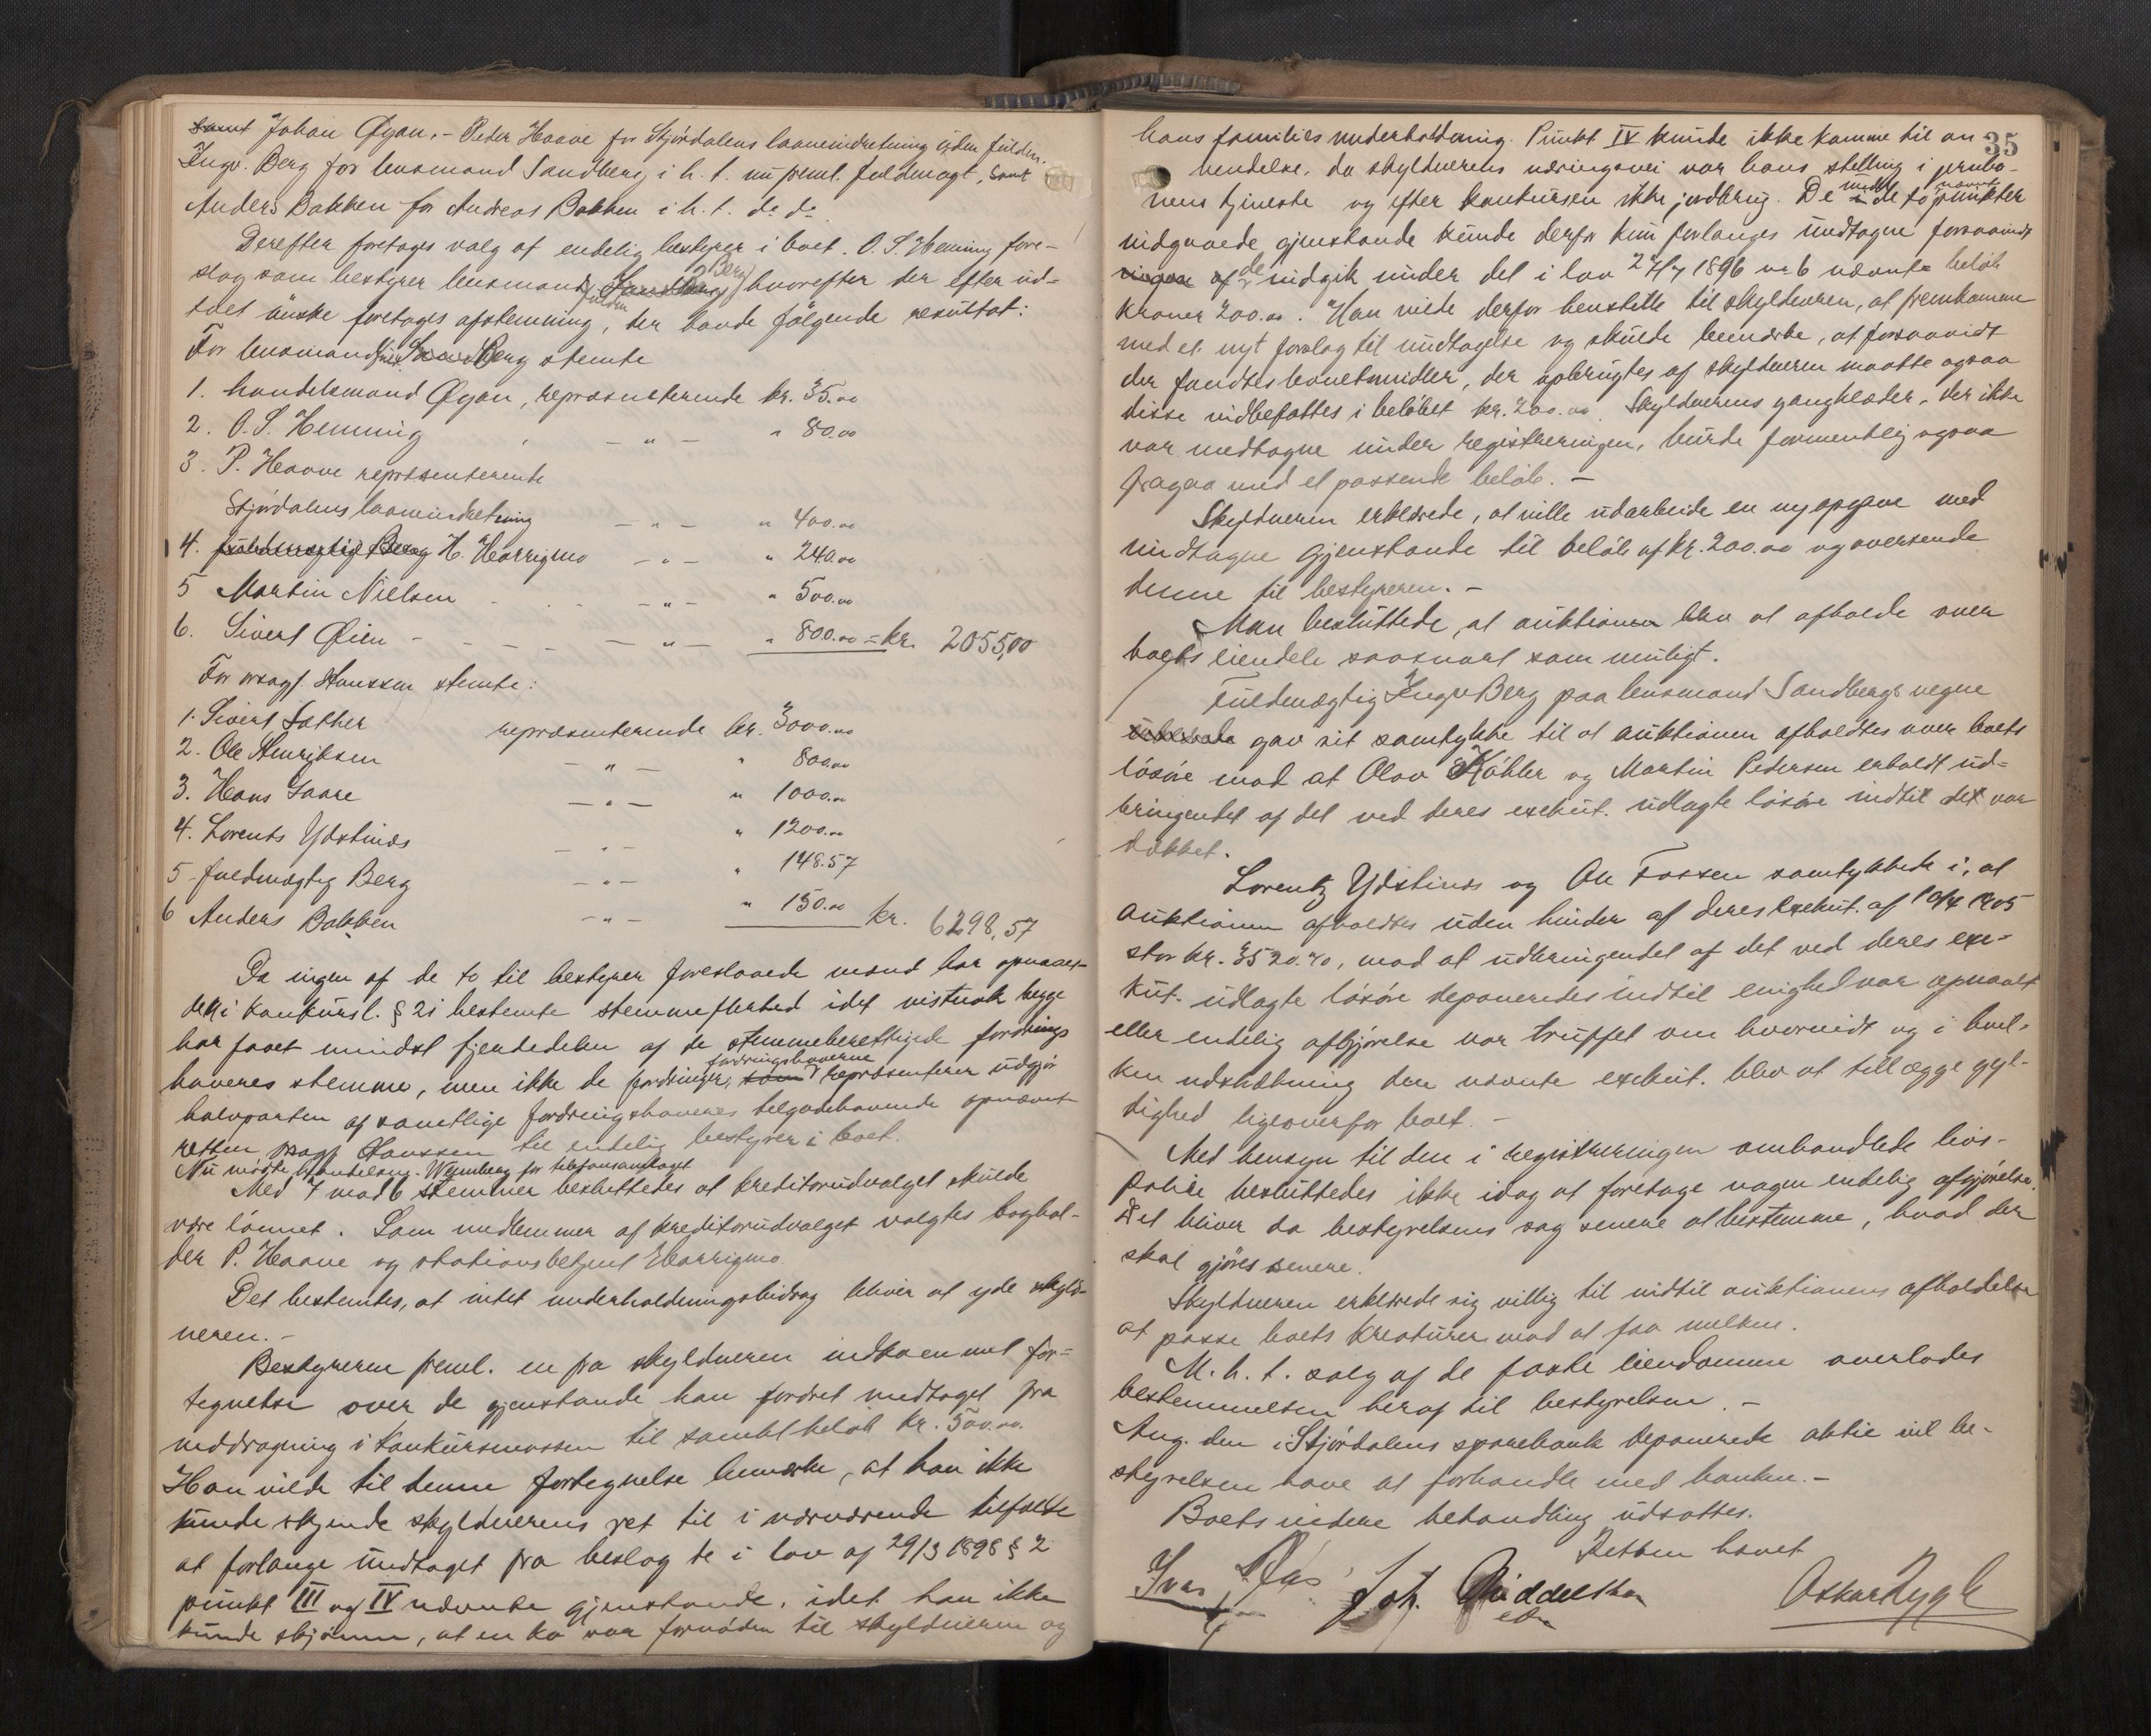 samt Johan Øyan. – Peder Haave for Stjördalens laaneindretning uden fuldm.
Ingv. Berg for lensmand Sandberg i h. t. nu freml. fuldmagt, samt
Anders Bakken for Andreas Bakken i h. t. do do
Derefter foretages valg af endelig bestyrer i boet. O. S. Hemmig fore-
slog som bestyrer lensmandsfuldm. Berg, hvorefter der efter ud-
talt önske foretages afstemning, der havde fölgende resultat:
For lensmandsfm. Berg stemte
1. handelsmand Øyan, repræsenterende kr. 35.00
2. O. S. Hemmig – " – " 80.00
3. P. Haave repræsenterende
Stjördalens laaneindretning – " – " 400.00
4. fuldmægtig Berg H. Harrigmo – " – " 240.00
5 Martin Nielsen – " – " 500.00
6. Sivert Øien – " – " 800.00 = kr. 2055,00
For orsagf. Hanssen stemte:
1. Sivert Sather repræsenterende kr. 3000.00
2. Ole Henriksen – " – " 800.00
3. Hans Saare – " – " 1000.00
4. Lorents Ydstinæs – " – " 1200.00
5 fuldmægtig Berg – " – " 148.57
6 Anders Bakken – " – " 150.00 kr. 6298,57
Da ingen af de to til bestyrer foreslaaede mænd har opnaaet
den i konkursl. § 21 bestemte stemmeflerhed idet vistnok begge
har faaet mindst fjerdedelen af de stemmeberettigede fordrings
haveres stemme, men ikke de fordringer, som fordringshaverne repræsenterer udgjör
halvparten af samtlige fordringshaveres tilgodehavende opnævnte
retten orsagf. Hanssen til endelig bestyrer i boet.
Nu mödte Handelsmg. Wennberg for telefonanlæget
Med 7 mod 6 stemmer besluttedes at kreditorudvalget skulde
være lönnet. Som medlemmer af kreditorudvalget valgtes boghol-
der P. Haave og stationsbetjent Harrigmo
Det bestemtes, at intet underholdningsbidrag bliver at yde skyld-
neren. –
Bestyreren freml. en fra skyldneren indkommet for-
tegnelse over de gjenstande han fordret undtaget fra
inddragning i konkursmassen til samlet belöb kr. 500.00.
Han vilde til denne fortegnelse bemærke, at han ikke
kunde skjende skyldnerens ret til i nærværende tilfælde
at forlange undtaget fra beslag de i lov af 29/3 1898 § 2
punkt III og IV nævnte gjenstande, idet han ikke
kunde skjönne, at en ko var fornöden til skyldneren og
35
hans families underholdning. Punkt IV kunde ikke komme til an
vendelse, da skyldnerens næringsvei var hans stilling i jernba-
nens tjeneste og efter konkursen ikke jordbrug. De under de to nævnte punkter
indgaaede gjenstande kunde derfor kun forlanges undtagne forsaavidt
de indgik under det i lov 27/7 1896 nr 6 nævnte belöb
kroner 200.00. Han vilde derfor henstille til skyldneren, at fremkomme
med et nyt forslag til undtagelse og skulde bemærke, at forsaavidt
der fandtes levnetsmidler, der opbrugtes af skyldneren maatte ogsaa
disse indbefattes i belöbet kr. 200.00. Skyldnerens gangklæder, der ikke
var medtagne under registreringen, burde formentlig ogsaa
fragaa med et passende belöb. –
Skyldneren erklærede, at ville udarbeide en ny opgave med
undtagne gjenstande til belöb af kr. 200.00 og oversende
denne til bestyreren. –
Man besluttede, at auktionen blev at afholde over
boets eiendele saasnart som muligt.
Fuldmægtig Ingv Berg paa lensmand Sandbergs vegne
erklærede gav sit samtykke til at auktionen afholdtes over boets
lösöre mod at Olav Köhler og Martin Pedersen erholdt ud-
bringendet af det ved deres exekut. udlagte lösöre indtil det var
dækket.
Lorentz Ydstines og Ole Fossen samtykkede i, at
auktionen afholdtes uden hinder af deres exekut. af 10/4 1905
stor kr. 3520.70, mod at udbringendet af det ved deres exe-
kut. udlagte lösöre deponeredes indtil enighed var opnaaet
eller endelig afgjörelse var truffet om hvorvidt og i hvil-
ken udstrækning den nævnte exekut. blev at tillægge gyl-
dighed ligeoverfor boet. –
Med hensyn til den i registreringen omhandlede livs-
polise besluttedes ikke idag at foretage nogen endelig afgjörelse.
Det bliver da bestyrelsens sag senere at bestemme, hvad der
skal gjöres senere.
Skyldneren erklærede sig villig til indtil auktionens afholdelse
at passe boets kreaturer mod at faa melken.
M. h. t. salg af de faste eiendomme overlodes
bestemmelsen heraf til bestyrelsen. –
Ang. den i Stjördalens sparebank deponerede aktie vil be-
styrelsen have at forhandle med banken. –
Boets videre behandling udsattes.
Retten hævet
Ivar Aas Joh. Middelthon Oskar Rygh